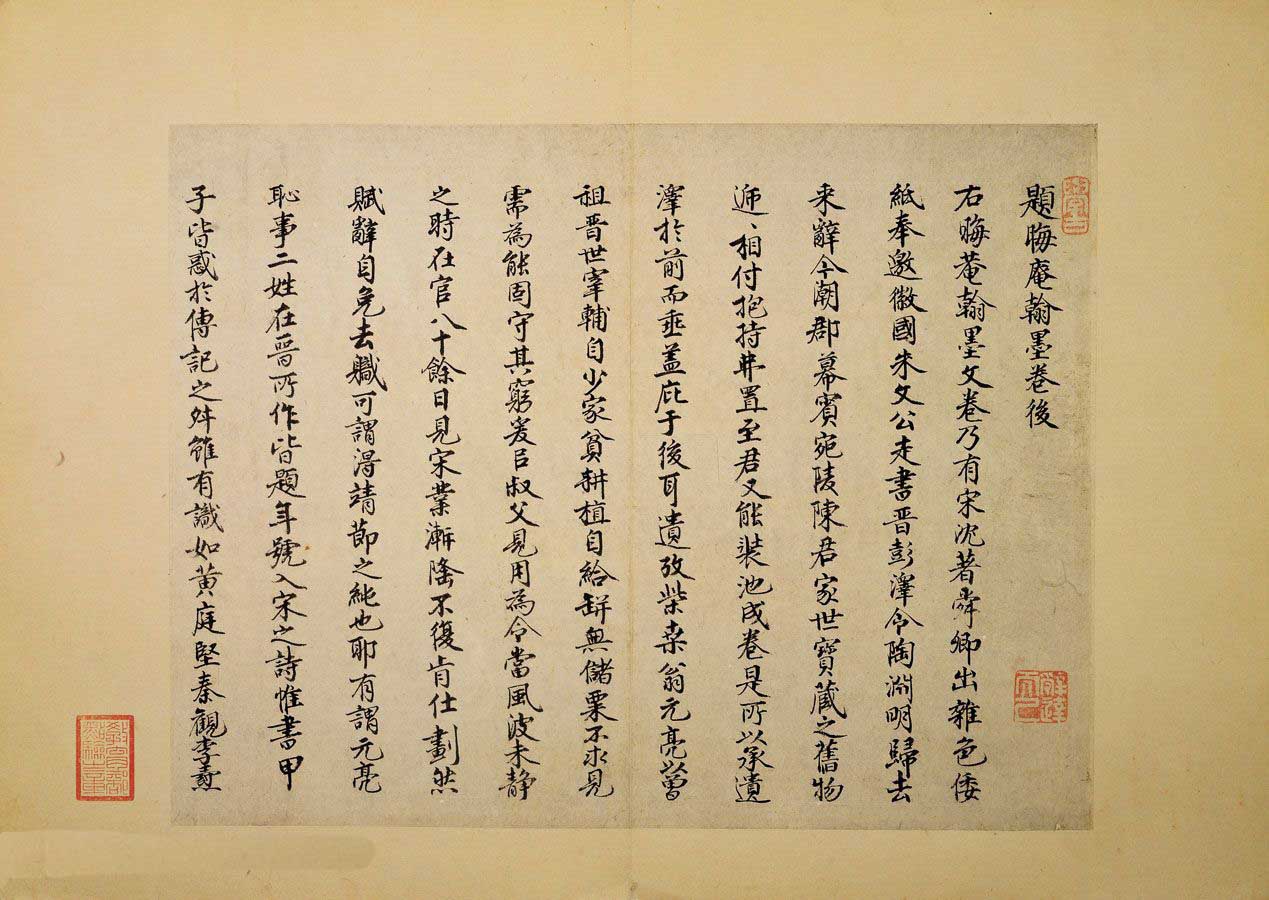 題晦庵翰墨卷後
右晦菴翰墨文卷乃有宋沈著舜卿出雜色倭
紙奉邀徽國朱文公走書晋彭澤令陶淵明歸去
来辭今潮郡幕賓宛陵陳君家世寶藏之舊物
逓〻相付抱持井置至君又能裝池成卷是所以承遺
澤於前而垂盖庇于後耳遺攷柴桒翁元亮以曽
祖晋世宰輔自少家貧耕植自給缾無儲粟不求見
需為能固守其窮爰以叔父見用為令當風波未静
之時在官八十餘日見宋業漸隆不復肯仕劃然
賦辭自免去職可謂淂靖莭之純也耶有謂元亮
恥事二姓在晋所作皆題年號入宋之詩惟書甲
子皆惑於傳記之舛雖有識如黄庭堅秦觀李燾